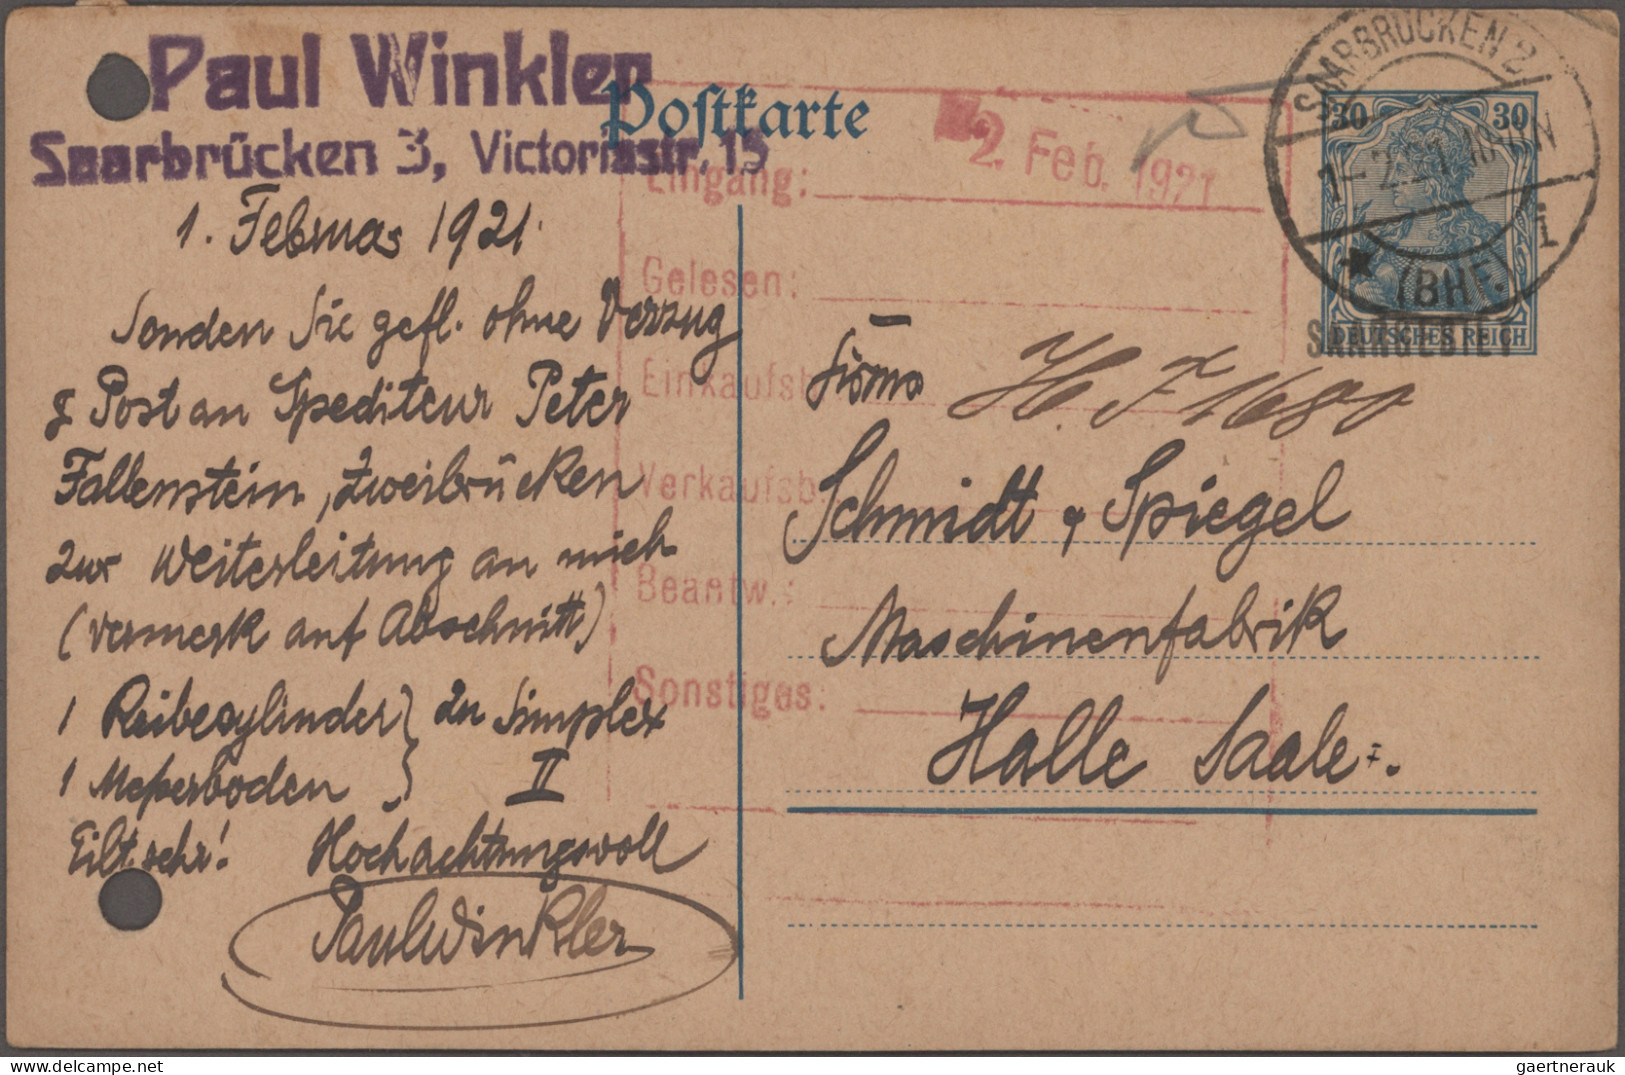 Paul Winkler
Saarbrücken 3, Victoriastr. 15
Postkarte
1. Februar 1921.
Senden Sie gefl. ohne Verzug
p Post an Spediteur Peter
Fallenstein, Zweibrücken
zur Weiterleitung an mich
(Vermerk auf Abschnitt)
1 Reibecylinder } zu Simplex
1 Messerboden } II
Eilt sehr! Hochachtungsvoll
Paul Winkler
Eingang: 2. Feb. 1921
Gelesen:
Einkaufsb
Verkaufsb.
Beantw.:
Sonstiges:
SAARBRÜCKEN 2
1-2.21
(BHF.)
30 30
DEUTSCHES REICH
SAARGEBIET
Firma
Schmidt & Spiegel
Maschinenfabrik
Halle Saale
gaertnerauk